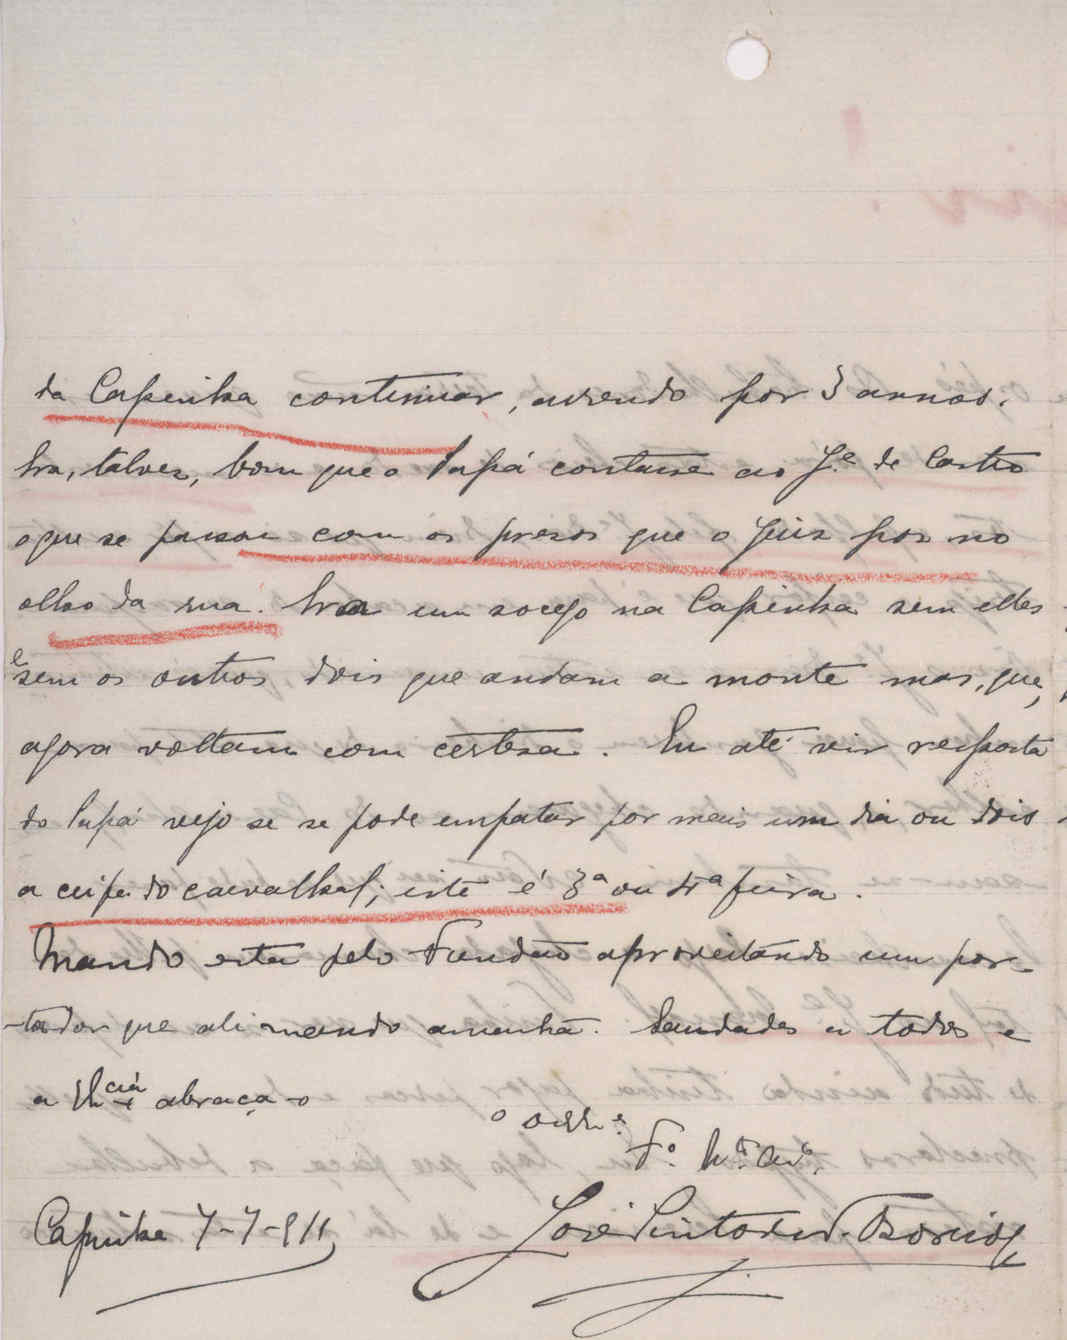 da Capinha continuar, ardendo por 3 annos.
Era, talvez, bom que o Papá contasse ao Je. de Castro
o que se passou com os presos que o juiz poz no
olho da rua. Era um socego na Capinha sem elles
e sem os outros dois que andam a monte mas, que,
agora voltam com certesa. Eu até vir resposta
do Papá vejo se se pode empatar por mais um dia ou dois
a ceifa do carvalhal; isto é 3ª ou 4ª feira.
Mando esta pelo Fundão aproveitando um por-
-tador que ali mando amanhã. Saudades a todos e
a abraça-o
o
Fº
Capinha 7-7-911 José Pinto